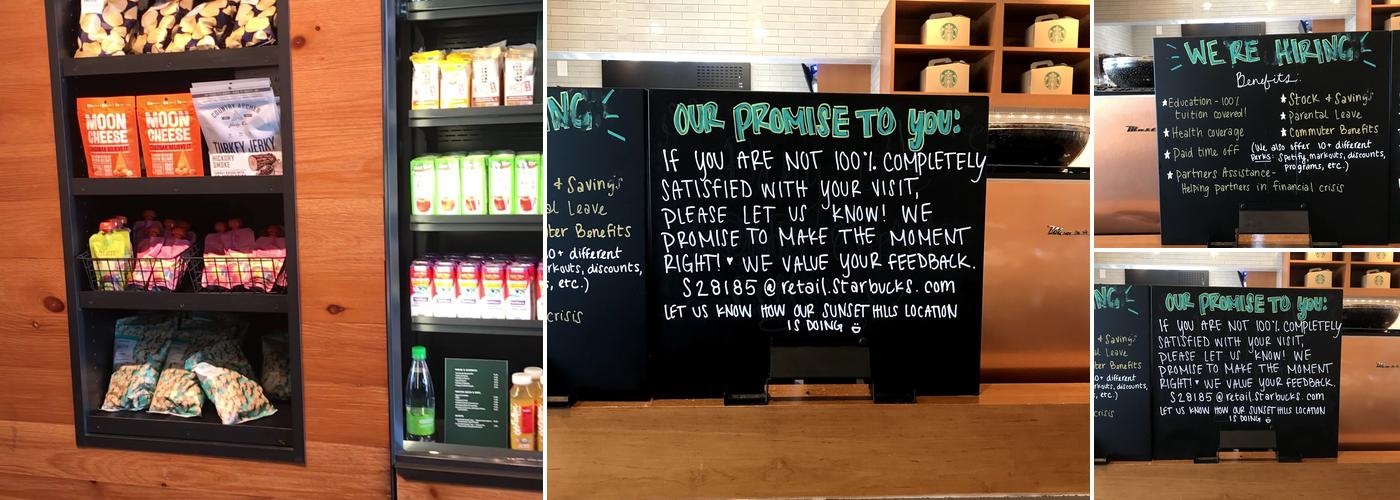 MOON
CHEESE
MOON
CHEESE
COUNTRY ARCHER
TURKEY JERKY
HICKORY
SMOKE
NG
& Savings
al Leave
ter Benefits
10+ different
rkouts, discounts,
s, etc.)
crisis
OUR PROMISE TO YOU:
IF YOU ARE NOT 100% COMPLETELY
SATISFIED WITH YOUR VISIT,
PLEASE LET US KNOW! WE
PROMISE TO MAKE THE MOMENT
RIGHT! ♥ WE VALUE YOUR FEEDBACK.
S28185@retail.starbucks.com
LET US KNOW HOW OUR SUNSET HILLS LOCATION
IS DOING
WE'RE HIRING
Benefits:
★ Education - 100%
tuition covered!
★ Health coverage
★ Paid time off
★ Stock & Savings
★ Parental Leave
★ Commuter Benefits
(We also offer 10+ different
Perks: Spotify, markouts, discounts,
programs, etc.)
★ Partners Assistance-
Helping partners in financial crisis
NG
& Savings
al Leave
ter Benefits
10+ different
rkouts, discounts,
s, etc.)
crisis
OUR PROMISE TO YOU:
IF YOU ARE NOT 100% COMPLETELY
SATISFIED WITH YOUR VISIT,
PLEASE LET US KNOW! WE
PROMISE TO MAKE THE MOMENT
RIGHT! ♥ WE VALUE YOUR FEEDBACK.
S28185@retail.starbucks.com
LET US KNOW HOW OUR SUNSET HILLS LOCATION
IS DOING